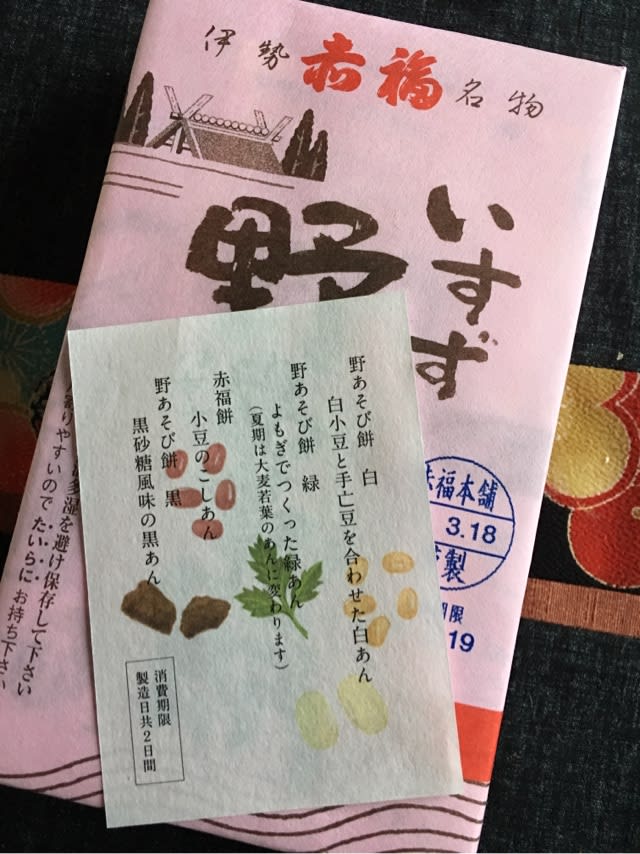 伊勢 赤福 名物
いすず
野
赤福本舗
3.18
製
期限
19
湿を避け保存して下さい
寄りやすいので たいらに お持ち下さい
野あそび餅 白
白小豆と手亡豆を合わせた白あん
野あそび餅 緑
よもぎでつくった緑あん
(夏期は大麦若葉のあんに変わります)
赤福餅
小豆のこしあん
野あそび餅 黒
黒砂糖風味の黒あん
消費期限
製造日共2日間